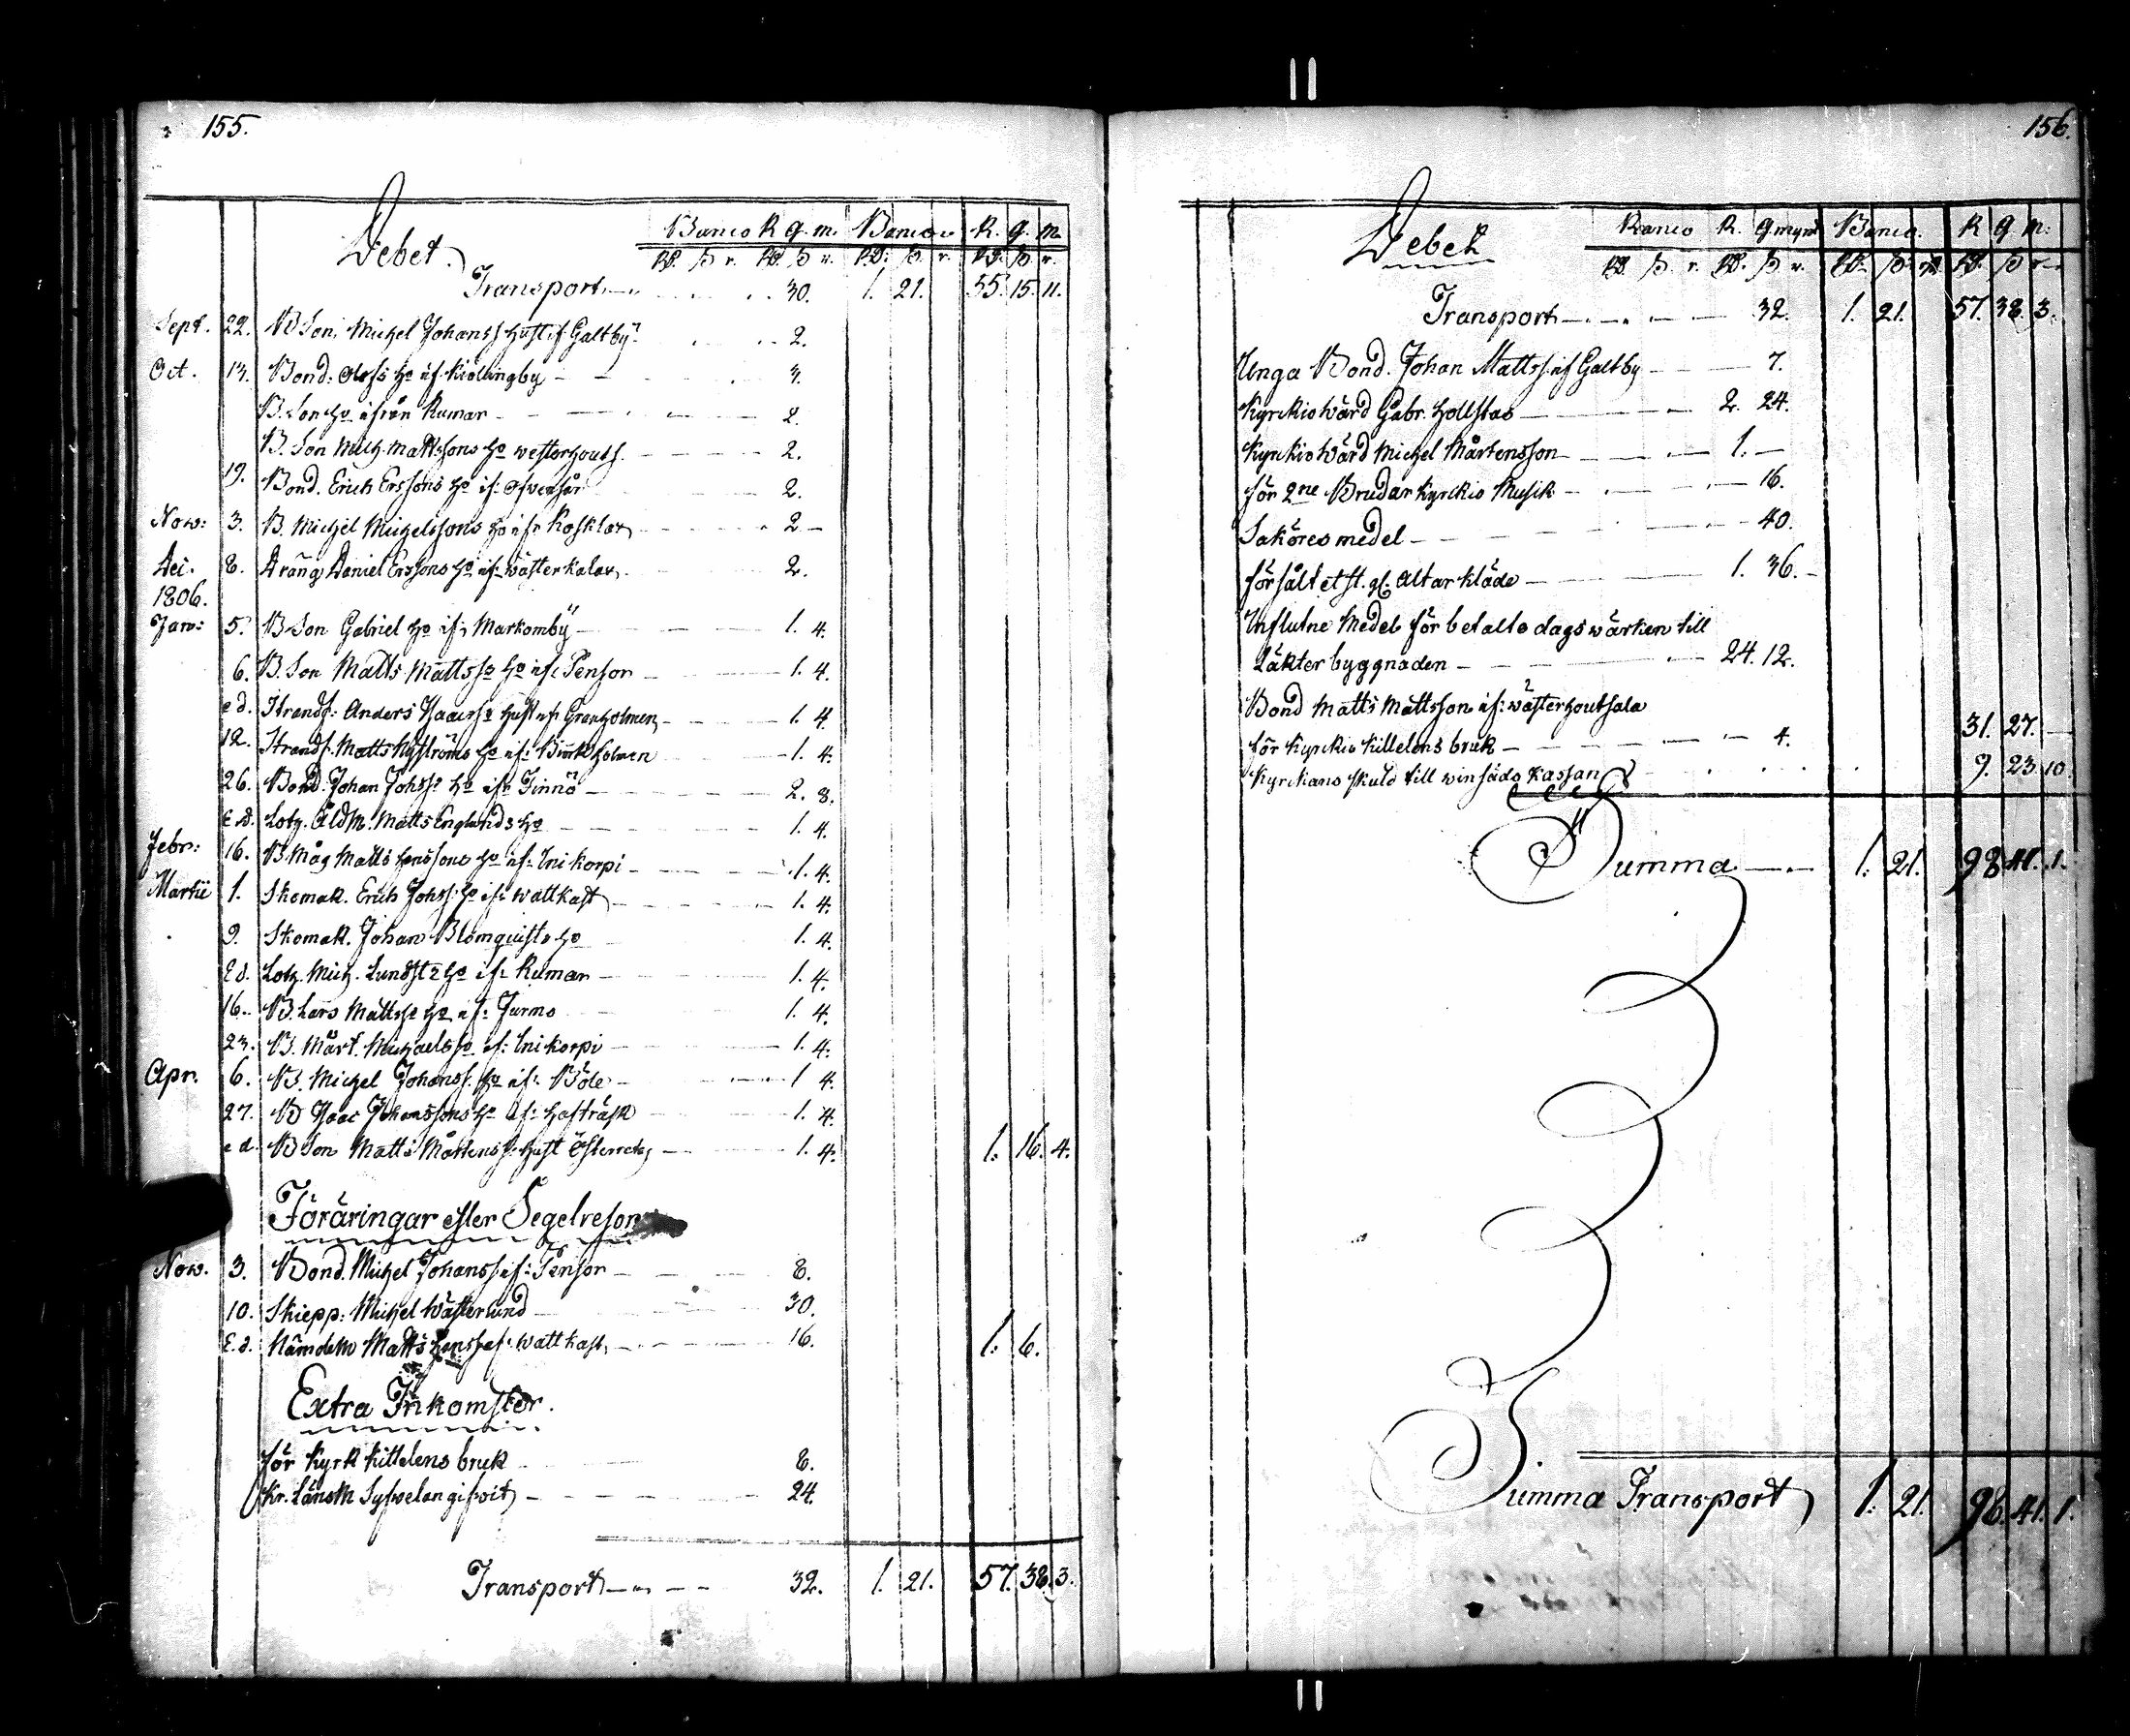 155.
Debet. Banco R. g. m. Banco R. g. m.
RD. ß r. RD. ß r. RD. ß. r. RD. ß. r.
Transport 30. 1. 21. 55. 15. 11.
Sept. 22. B Son. Michel Johanss hust if Galtby 2.
Oct. 13. Bond: Olofs ho if. Kiöllingby 3.
B. Son ho ifrån Rumar 2.
B. Son Mich Mattssons ho westerhouts. 2.
19. Bond. Erich Erssons ho if: 2.
Now: 3. B. Michel Michelssons ho if: Kosklax 2
Dei. 8. Dräng Daniel Erssons ho if: wästerkalax 2.
1806.
Jan: 5. B Son Gabriel ho if: Markomby 1. 4.
6. B. Son Matts Mattss ho if: Pensor 1. 4.
e d. Strandf: Anders Isacss hust if: Granholmen 1. 4.
12. Strandf. Matts Nyströms ho if: Biörkholmen 1. 4.
26. Bond. Johan Johss ho if: Finnö 2. 8.
E d. Lotz. Åldm. Matts Englunds ho 1. 4.
Febr: 16. B Måg Matts hanssons ho if: Inikorpi 1. 4.
Martii 1. Skomak. Erich Johss ho if: wattkast 1. 4.
9. Skomak. Johan Blomquists ho 1. 4.
E d. Lotz. Mich. Lundst ho if: Rumar 1. 4.
16. B. Lars Mattss ho if: Jurmo 1. 4.
23. B. Mårt. Michaels ho if: Inikorpi 1. 4.
Apr. 6. B. Michel Johanss. ho if: Böle 1 4.
27. B Isaac Johanssons ho if: hafträsk 1. 4.
e d. B Son Matts Mårtenss hust Österretaj 1. 4. 1. 16. 4.
Föräringar efter Segelresor
Now. 3. Bond. Michel Johanss if: Pensor 8.
10. Skiepp: Michel Wästerlund 30.
E. d. Nämdem Matts hanss if: wattkast 16. 1. 6.
Extra Inkomster.
för Kyrk kittelens bruk 8.
Kr. Länsm Sylvelan gifvit 24.
Transport 32. 1. 21. 57. 38. 3.
156.
Debet Banco R. g mynt Banco. R g m:
RD. ß. r. RD. ß r. RD. ß r RD. ß r
Transport 32. 1. 21. 57. 38. 3.
Unga Bond. Johan Mattss if Galtby 7.
Kyrckiowärd Gabr. hollstas 2. 24.
Kyrckiowärd Michel Mårtensson 1.
för 2ne Brudar Kyrckio Musik 16.
Saköres medel 40.
försålt et st. gl. Altar kläde 1. 36.
Influtne Medel för betalte dagswärken till
Läkter byggnaden 24. 12.
Bond Matts Mattsson if: wästerhoutsala
för Kyrckio Kittelens bruk 4. 31. 27.
Kyrckans skuld till winsäds kassan 9. 23 10
Summa 1. 21. 98 41. 1.
Summa Transport 1. 21. 98. 41. 1.